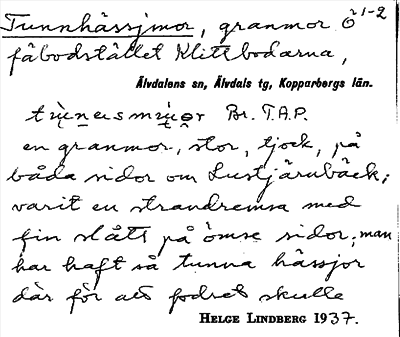 Tunnhässjmor, granmor Ö 1-2
fäbodstället Klittbodarna,
Älvdalens sn, Älvdals tg, Kopparbergs län.
Br. T.A.P.
en granmor, stor, tjock, på
båda sidor om Lustjärnbäck;
varit en strandremsa med
fin slått på ömse sidor; man
har haft så tunna hässjor
där för att fodret skulle
HELGE LINDBERG 1937.